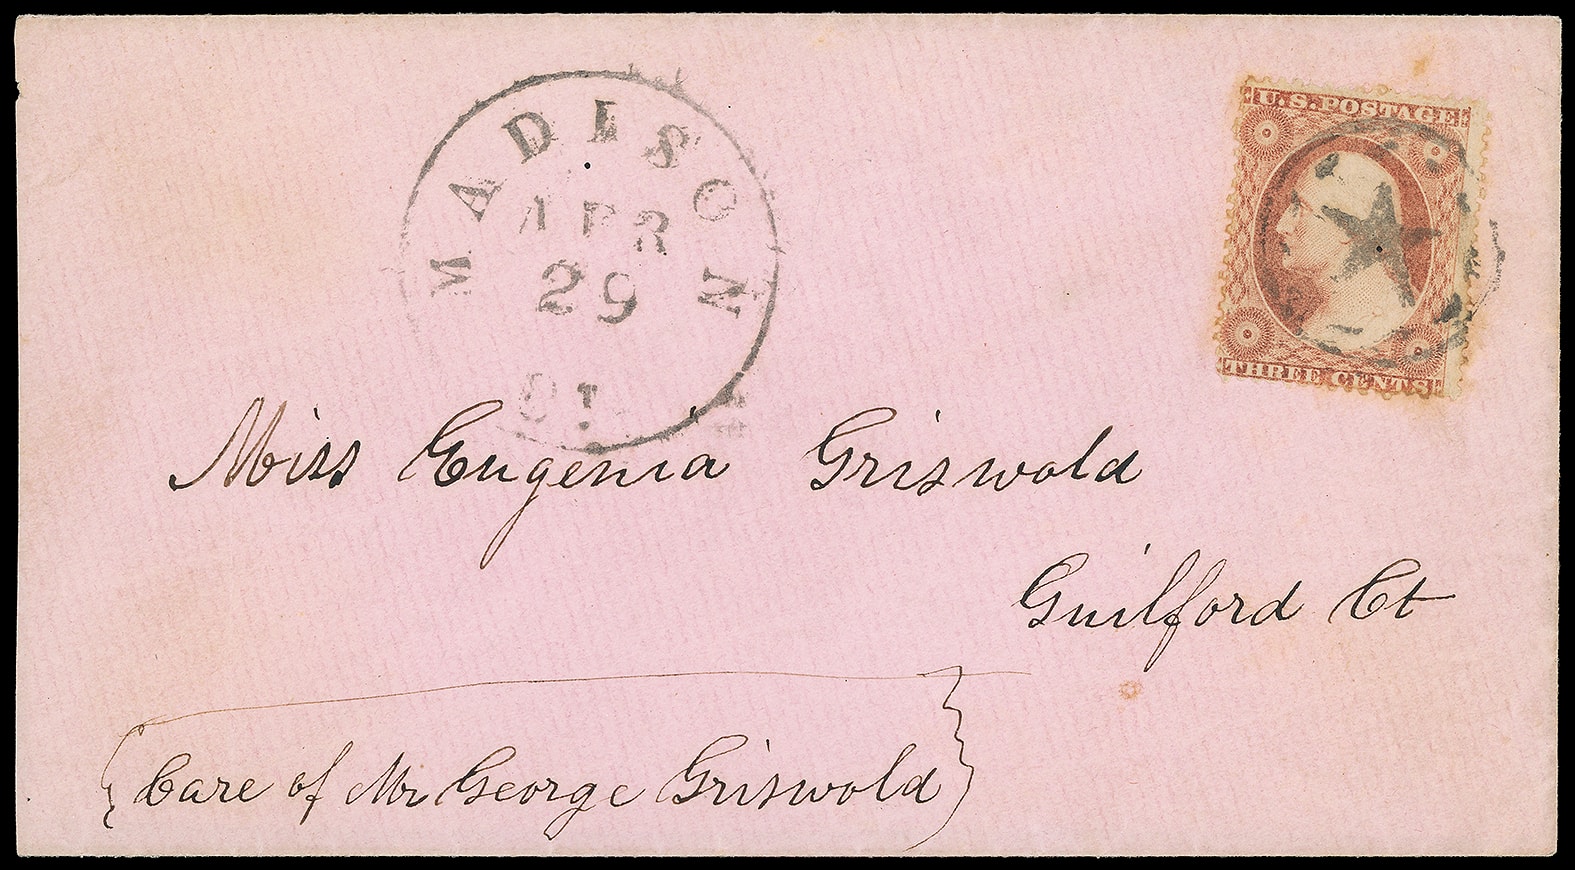 MADISON
APR
29
CT.
U.S. POSTAGE
THREE CENTS
Miss Eugenia Griswold
Guilford Ct
Care of Mr George Griswold